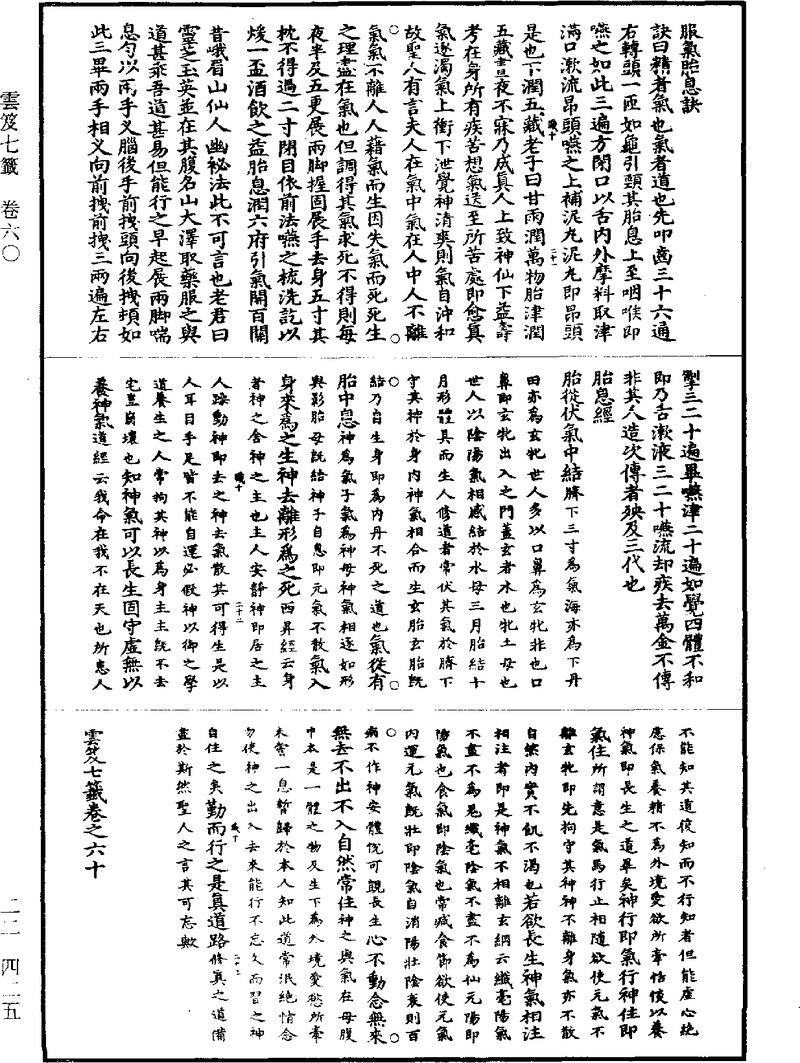 服氣胎息訣
訣曰精者氣也氣者道也先叩齒三十六通
右轉頭一匝如龜引頸其胎息上至咽喉即
嚥之如此三遍方閉口以舌內外摩料取津
滿口漱流昂頭嚥之上補泥丸泥丸即昂頭
是也下潤五藏老子曰甘雨潤萬物胎津潤
五藏晝夜不寐乃成真人上致神仙下益壽
考在身所有疾苦想氣送至所苦處即愈真
氣逐濁氣上衝下泄覺神清爽則氣自沖和
故聖人有言夫人在氣中氣在人中人不離
氣氣不離人人藉氣而生因失氣而死死生
之理盡在氣也但調得其氣求死不得則每
夜半及五更展兩脚握固展手去身五寸其
枕不得過二寸閉目依前法嚥之梳洗訖以
煖一盃酒飲之益胎息潤六府引氣開百關
昔峨眉山仙人幽祕法此不可言也老君曰
靈芝玉英並在其腹名山大澤取藥服之與
道甚乖吾道甚易但能行之早起展兩脚喘
息勻以兩手叉腦後手前拽頭向後拽頓如
此三畢兩手相叉向前拽前拽三兩遍左右
掣三二十遍畢嚥津二十遍如覺四體不和
即乃舌漱液三二十嚥流却疾去萬金不傳
非其人造次傳者殃及三代也
胎息經
胎從伏氣中結臍下三寸為氣海亦為下丹
田亦為玄牝世人多以口鼻為玄牝非也口
鼻即玄牝出入之門蓋玄者水也牝土母也
世人以陰陽氣相感結於水母三月胎結十
月形體具而生人修道者常伏其氣於臍下
守其神於身內神氣相合而生玄胎玄胎既
結乃自生身即為內丹不死之道也氣從有
胎中息神為氣子氣為神母神氣相逐如形
與影胎母既結神子自息即元氣不散氣入
身來為之生神去離形為之死西昇經云身
者神之舍神之主也主人安靜神即居之主
人躁動神即去之神去氣散其可得生是以
人耳目手足皆不能自運必假神以御之學
道養生之人常拘其神以為身主主既不去
宅豈崩壞也知神氣可以長生固守虛無以
養神氣道經云我命在我不在天也所患人
不能知其道復知而不行知者但能虛心絕
慮保氣養精不為外境愛欲所牽恬惔以養
神氣即長生之道畢矣神行即氣行神住即
氣住所謂意是氣馬行止相隨欲使元氣不
離玄牝即先拘守其神神不離身氣亦不散
自然內實不飢不渴也若欲長生神氣相注
相注者即是神氣不相離玄綱云纖毫陽氣
不盡不為鬼纖毫陰氣不盡不為仙元陽即
陽氣也食氣即陰氣也常減食節欲使元氣
內運元氣既壯即陰氣自消陽壯陰衰則百
病不作神安體恱可覬長生心不動念無來
無去不出不入自然常住神之與氣在母腹
中本是一體之物及生下為外境愛慾所牽
未嘗一息暫歸於本人知此道常泯絕情念
勿使神之出入去來能行不忘久而習之神
自住之矣勤而行之是真道路修真之道備
盡於斯然聖人之言其可忘歟
雲笈七籤卷之六十
雲笈七籤 卷六〇
二二—四二五